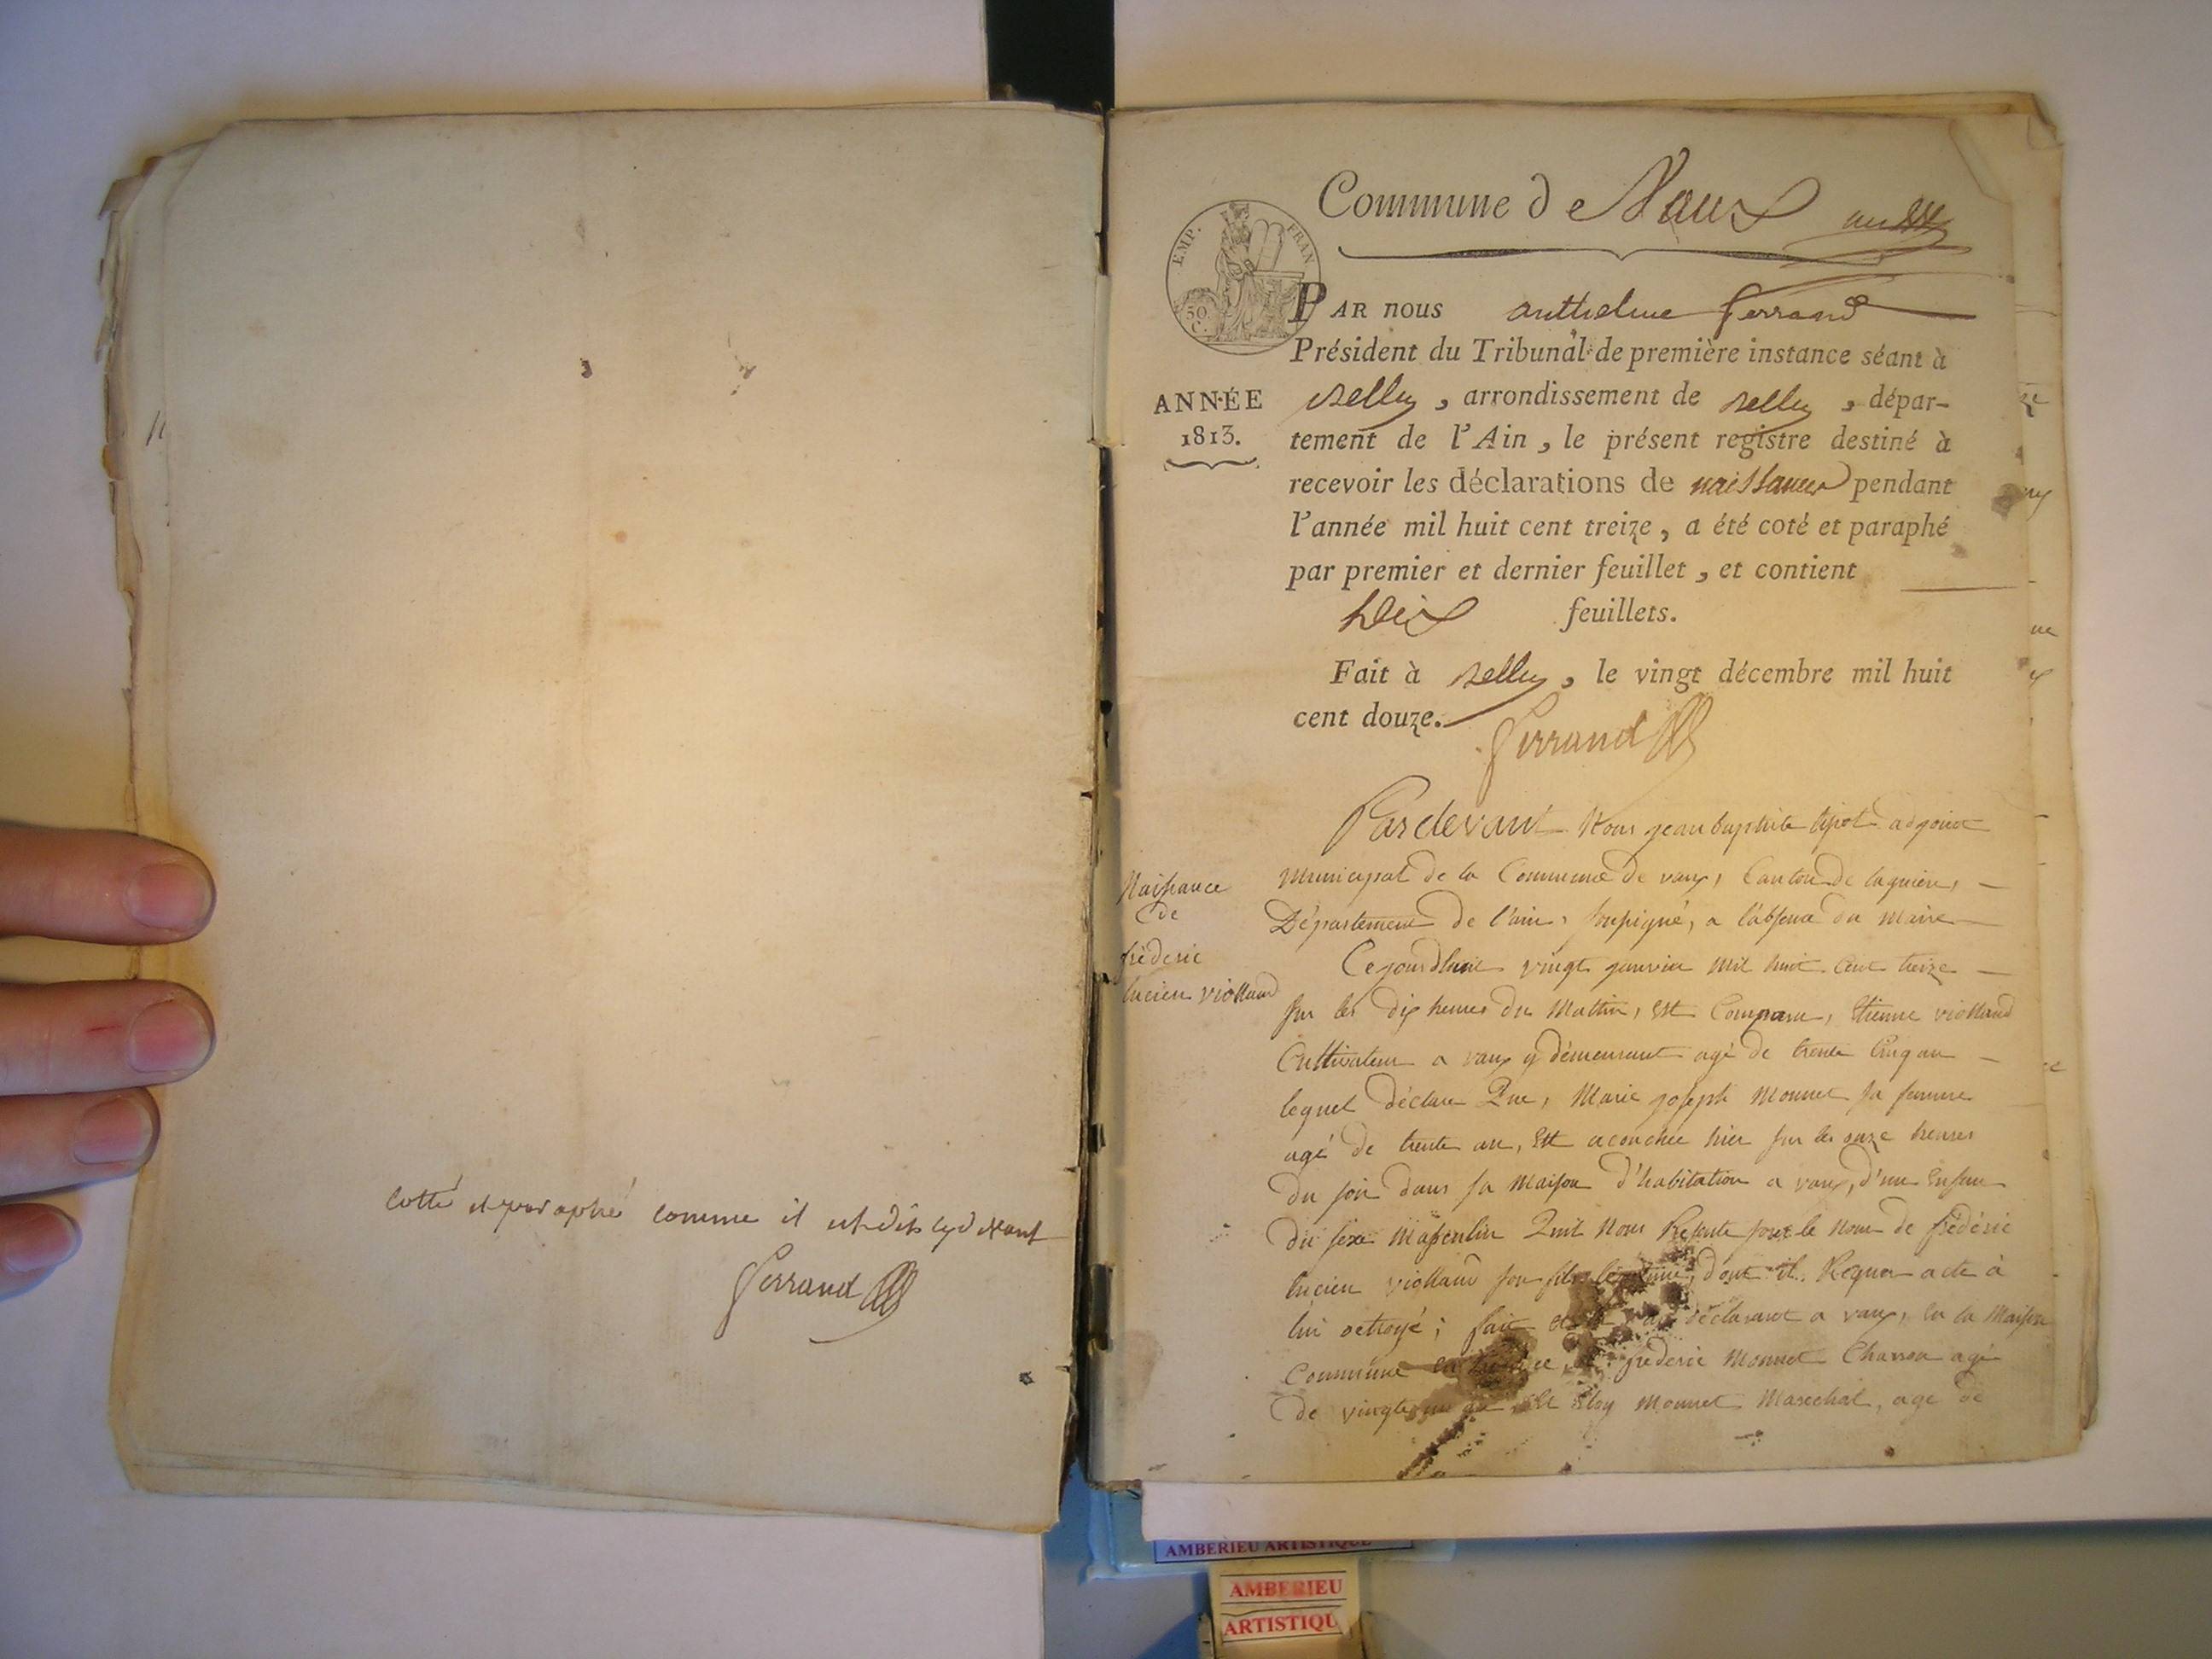 cotté et paraphé comme il est dit cy devant
Ferrand
Commune de Vaux
EMP. FRAN
50 C.
PAR nous anthelme ferrand
Président du Tribunal de première instance séant à
ANNÉE
1813.
Belley, arrondissement de Belley, dépar-
tement de l'Ain, le présent registre destiné à
recevoir les déclarations de naissances pendant
l'année mil huit cent treize, a été coté et paraphé
par premier et dernier feuillet, et contient
Dix feuillets.
Fait à Belley, le vingt décembre mil huit
cent douze.
Ferrand
Naissance
de
frédéric
lucien violland
Pardevant Nous jean baptiste adjoint
Municipal de la Commune de vaux, Canton de lagnieu,
Département de l'ain, soussigné, a l'absence du maire
Cejourdhuit vingt janvier mil huit cent treize
sur les dix heures du Mattin, est Comparu, Etienne violland
Cultivateur a vaux y démeurant agé de trente Cinq an
lequel déclare Que, Marie joseph Monnet sa femme
agé de trente an, Est acouchée hier sur les onze heures
du soir dans sa Maison d'habitation a vaux, d'un Enfan
du sexe Masculin Quil Nous Présente sous le Nom de frédéric
lucien violland son fils légitime, dont il Requer acte à
lui octroyé; fait déclarant a vaux, en la Maison
Commune frederic Monnet Charron agé
de vingt Et Eloy Monnet Marechal, age de
AMBERIEU ARTISTIQUE
AMBERIEU
ARTISTIQU